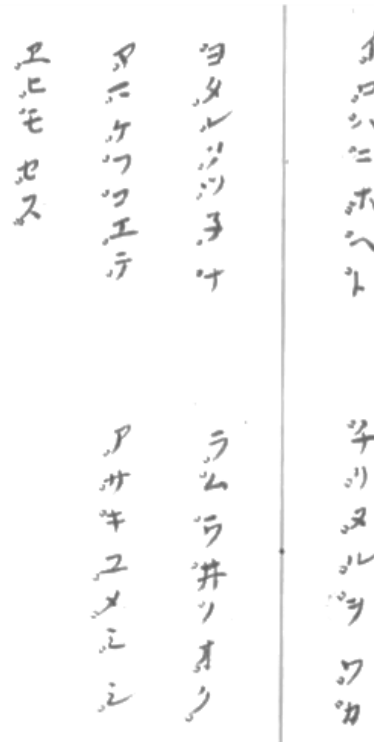 イロハニホヘト　チリヌルヲワカ
ヨタレソツ子ナ　ラムウ井ノオク
ヤマケフコエテ　アサキユメミシ
ヱヒモセス